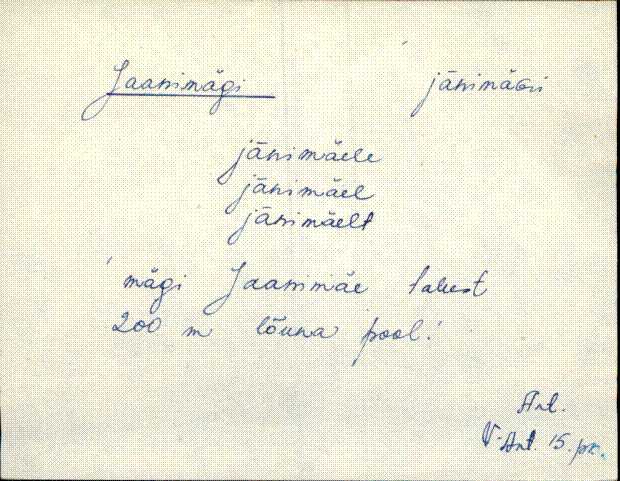 Jaanimägi jānimäGi
jānimäele
jānimäel
jānimäelt
mägi Jaanimäe talust
200 m lõuna pool.
Ant.
V-Ant. 15. pk.